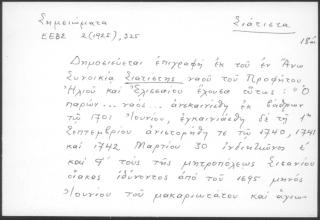 Σημειώματα Σιάτιστα
ΕΕΒΣ 2 (1925), 325
18ᵒˢ
Δημοσιεύεται ἐπιγραφὴ ἐκ τοῦ ἐν Ἄνω
Συνοικίᾳ Σιατίστης ναοῦ τοῦ Προφήτου
Ἠλιοῦ καὶ Ἐλισσαίου ἔχουσα οὕτως: "Ὁ
παρών... ναός.. ἀνεκαινίσθη ἐκ βάθρων
τῷ 1701 Ἰουνίου, ἐγκαινιάσθη δὲ τῇ 1ῃ
Σεπτεμβρίου ἀνιστορήθη τε τῷ 1740, 1741
καὶ 1742 Μαρτίου 30 ἰνδικτιῶνος ε΄
καὶ τοὺς τῆς μητροπόλεως Σισανίου
οἴακας ἰθύνοντος ἀπὸ τοῦ 1695 μηνὸς
Ἰουνίου τοῦ μακαριωτάτου καὶ ἁγιω-